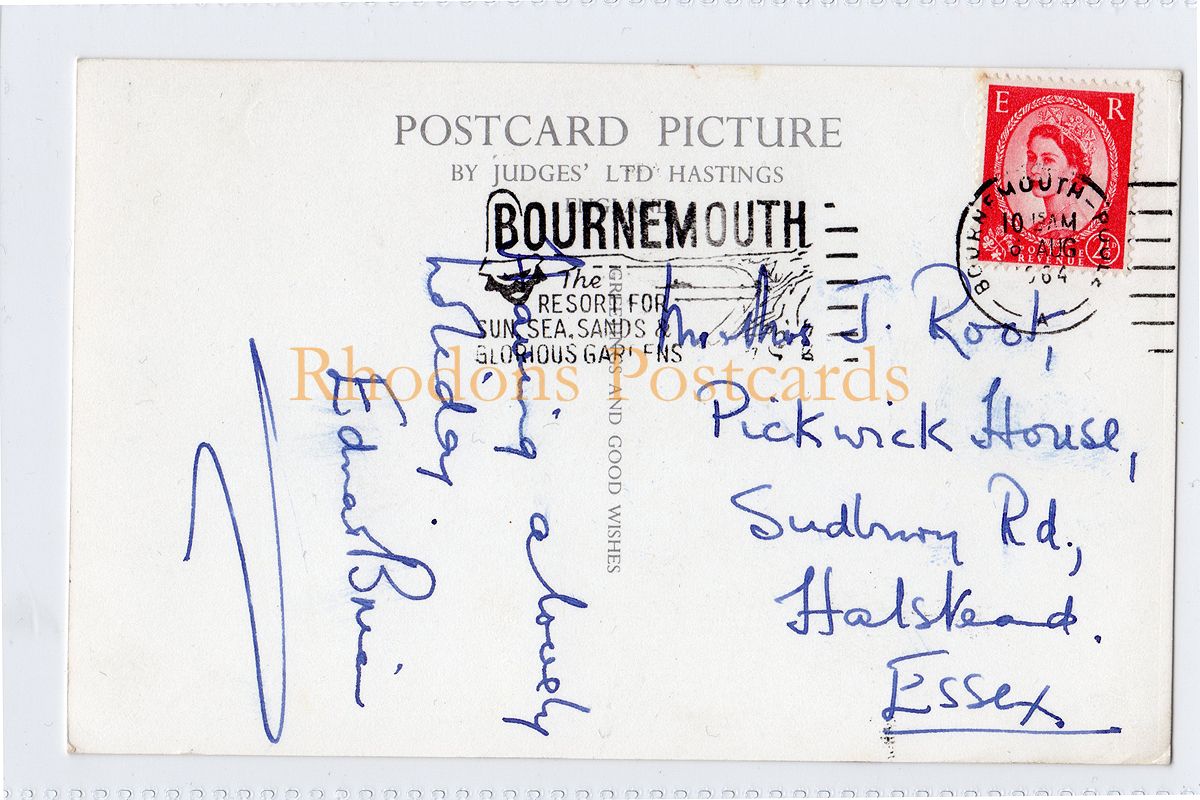 POSTCARD PICTURE
BY JUDGES' LTD HASTINGS
ENGLAND
E R
POSTAGE
REVENUE
BOURNEMOUTH-POOLE
10 15 AM
6 AUG
1964
A
BOURNEMOUTH
The
RESORT FOR
SUN, SEA, SANDS &
GLORIOUS GARDENS
GREETINGS AND GOOD WISHES
Having a lovely
holiday.
Edna & Brian
Mr & Mrs J. Root,
Pickwick House,
Sudbury Rd.,
Halstead.
Essex
Rhodons Postcards